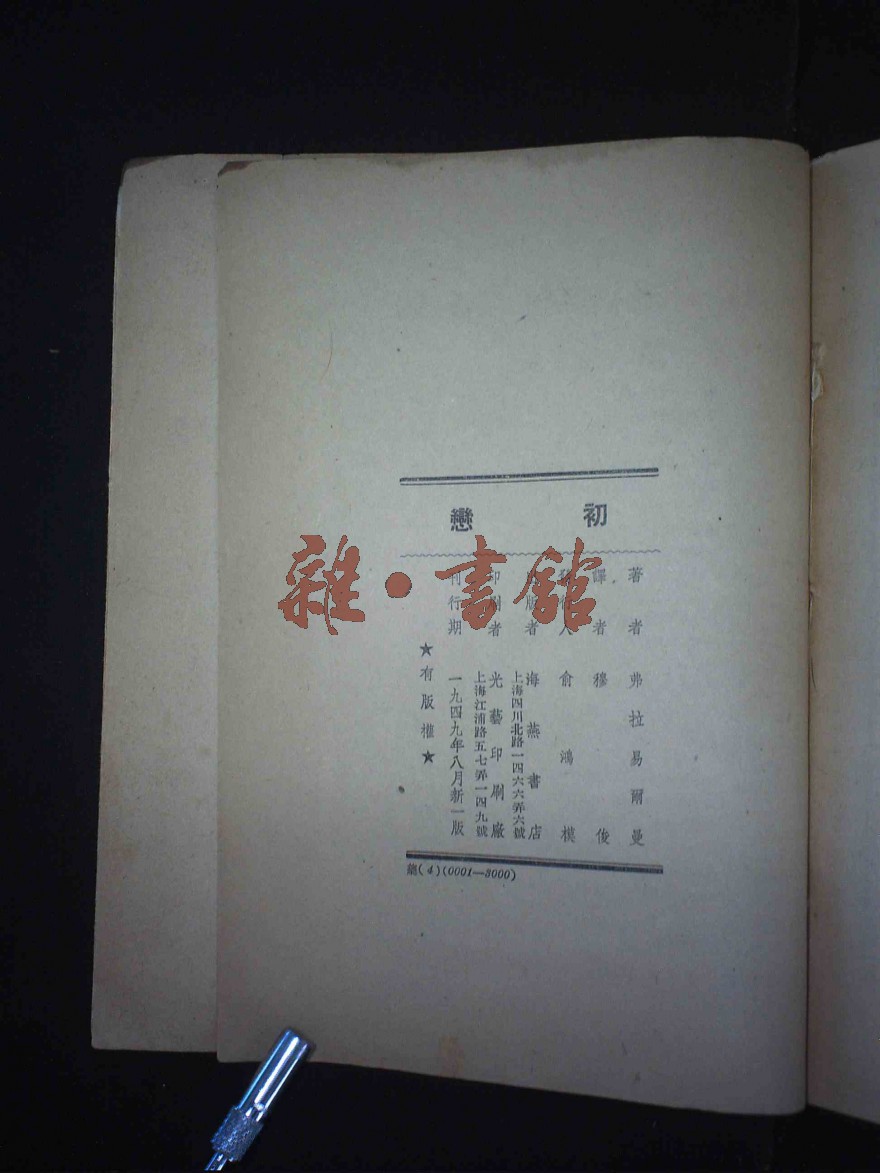 初戀
著者 弗拉易爾曼
譯者 穆俊
人 俞鴻模
版者 海燕書店
上海四川北路一四六六弄六號
印刷者 光藝印刷廠
上海江浦路五七弄一四九號
刊行期 一九四九年八月新一版
★有版權★
(4)(0001—3000)
雜·書館